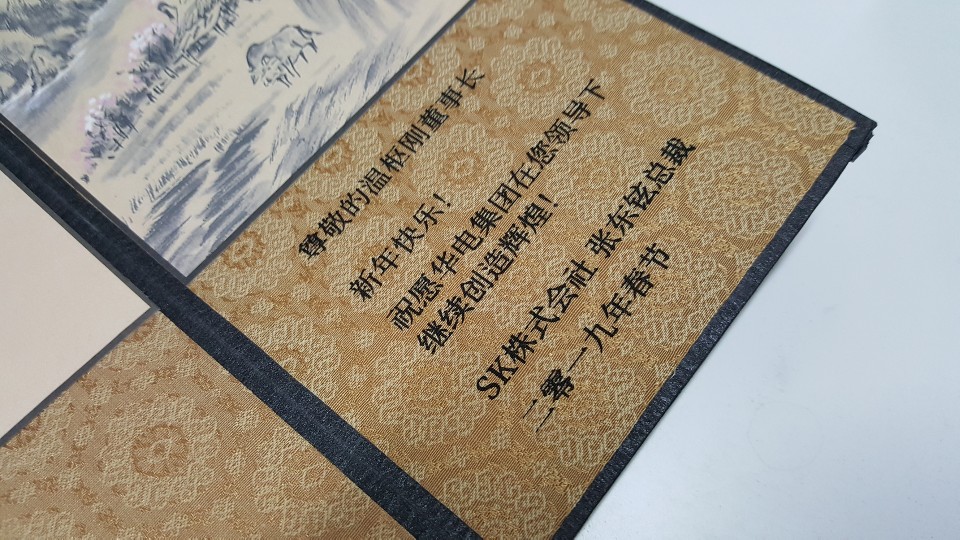 尊敬的温枢刚董事长
新年快乐！
祝愿华电集团在您领导下
继续创造辉煌！
SK株式会社 张东铉总裁
二零一九年春节